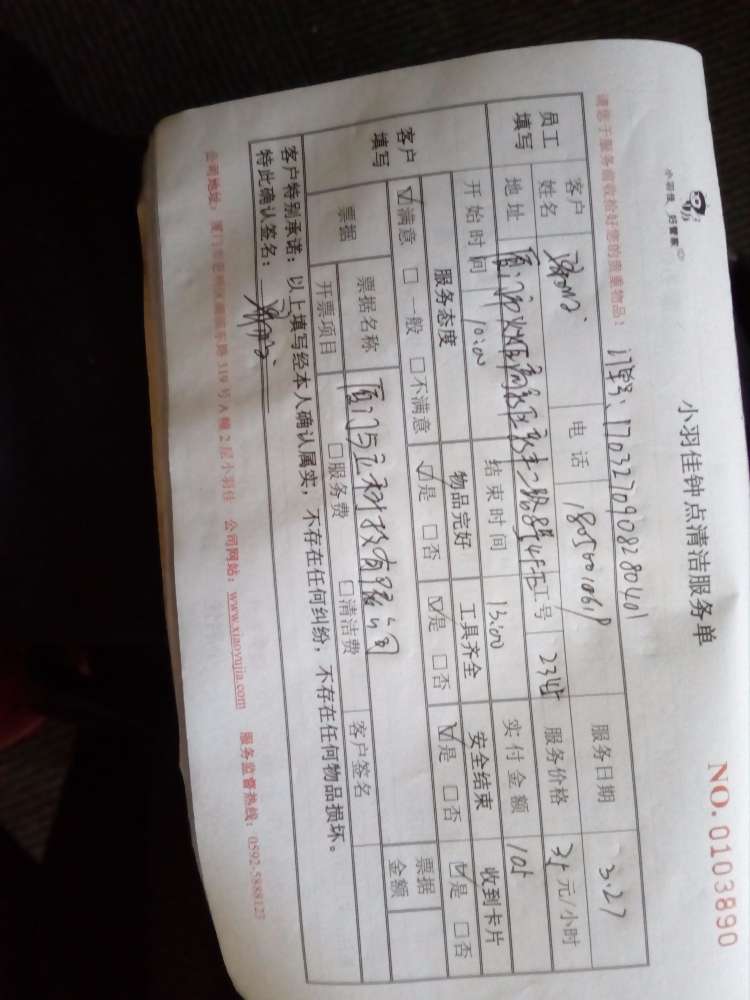 小羽佳 好管家
小羽佳钟点清洁服务单
NO.0103890
请您于服务前收检好您的贵重物品!
订单号:1703270908280401
员工填写
客户姓名 电话 18050010619 服务日期 3.27
地址 工号 服务价格 35 元/小时
开始时间 10:00 结束时间 13:00 实付金额 105
客户填写
服务态度 物品完好 工具齐全 安全结束 收到卡片
☑满意 □一般 □不满意 ☑是 □否 ☑是 □否 ☑是 □否 ☑是 □否
票据 票据名称 票据金额
开票项目 □服务费 □清洁费 客户签名
客户特别承诺:以上填写经本人确认属实,不存在任何纠纷,不存在任何物品损坏。
特此确认签名:
公司地址:厦门市 319号A幢2层小羽佳 公司网站:www.xiaoyujia.com 服务监督热线:0592-5888123